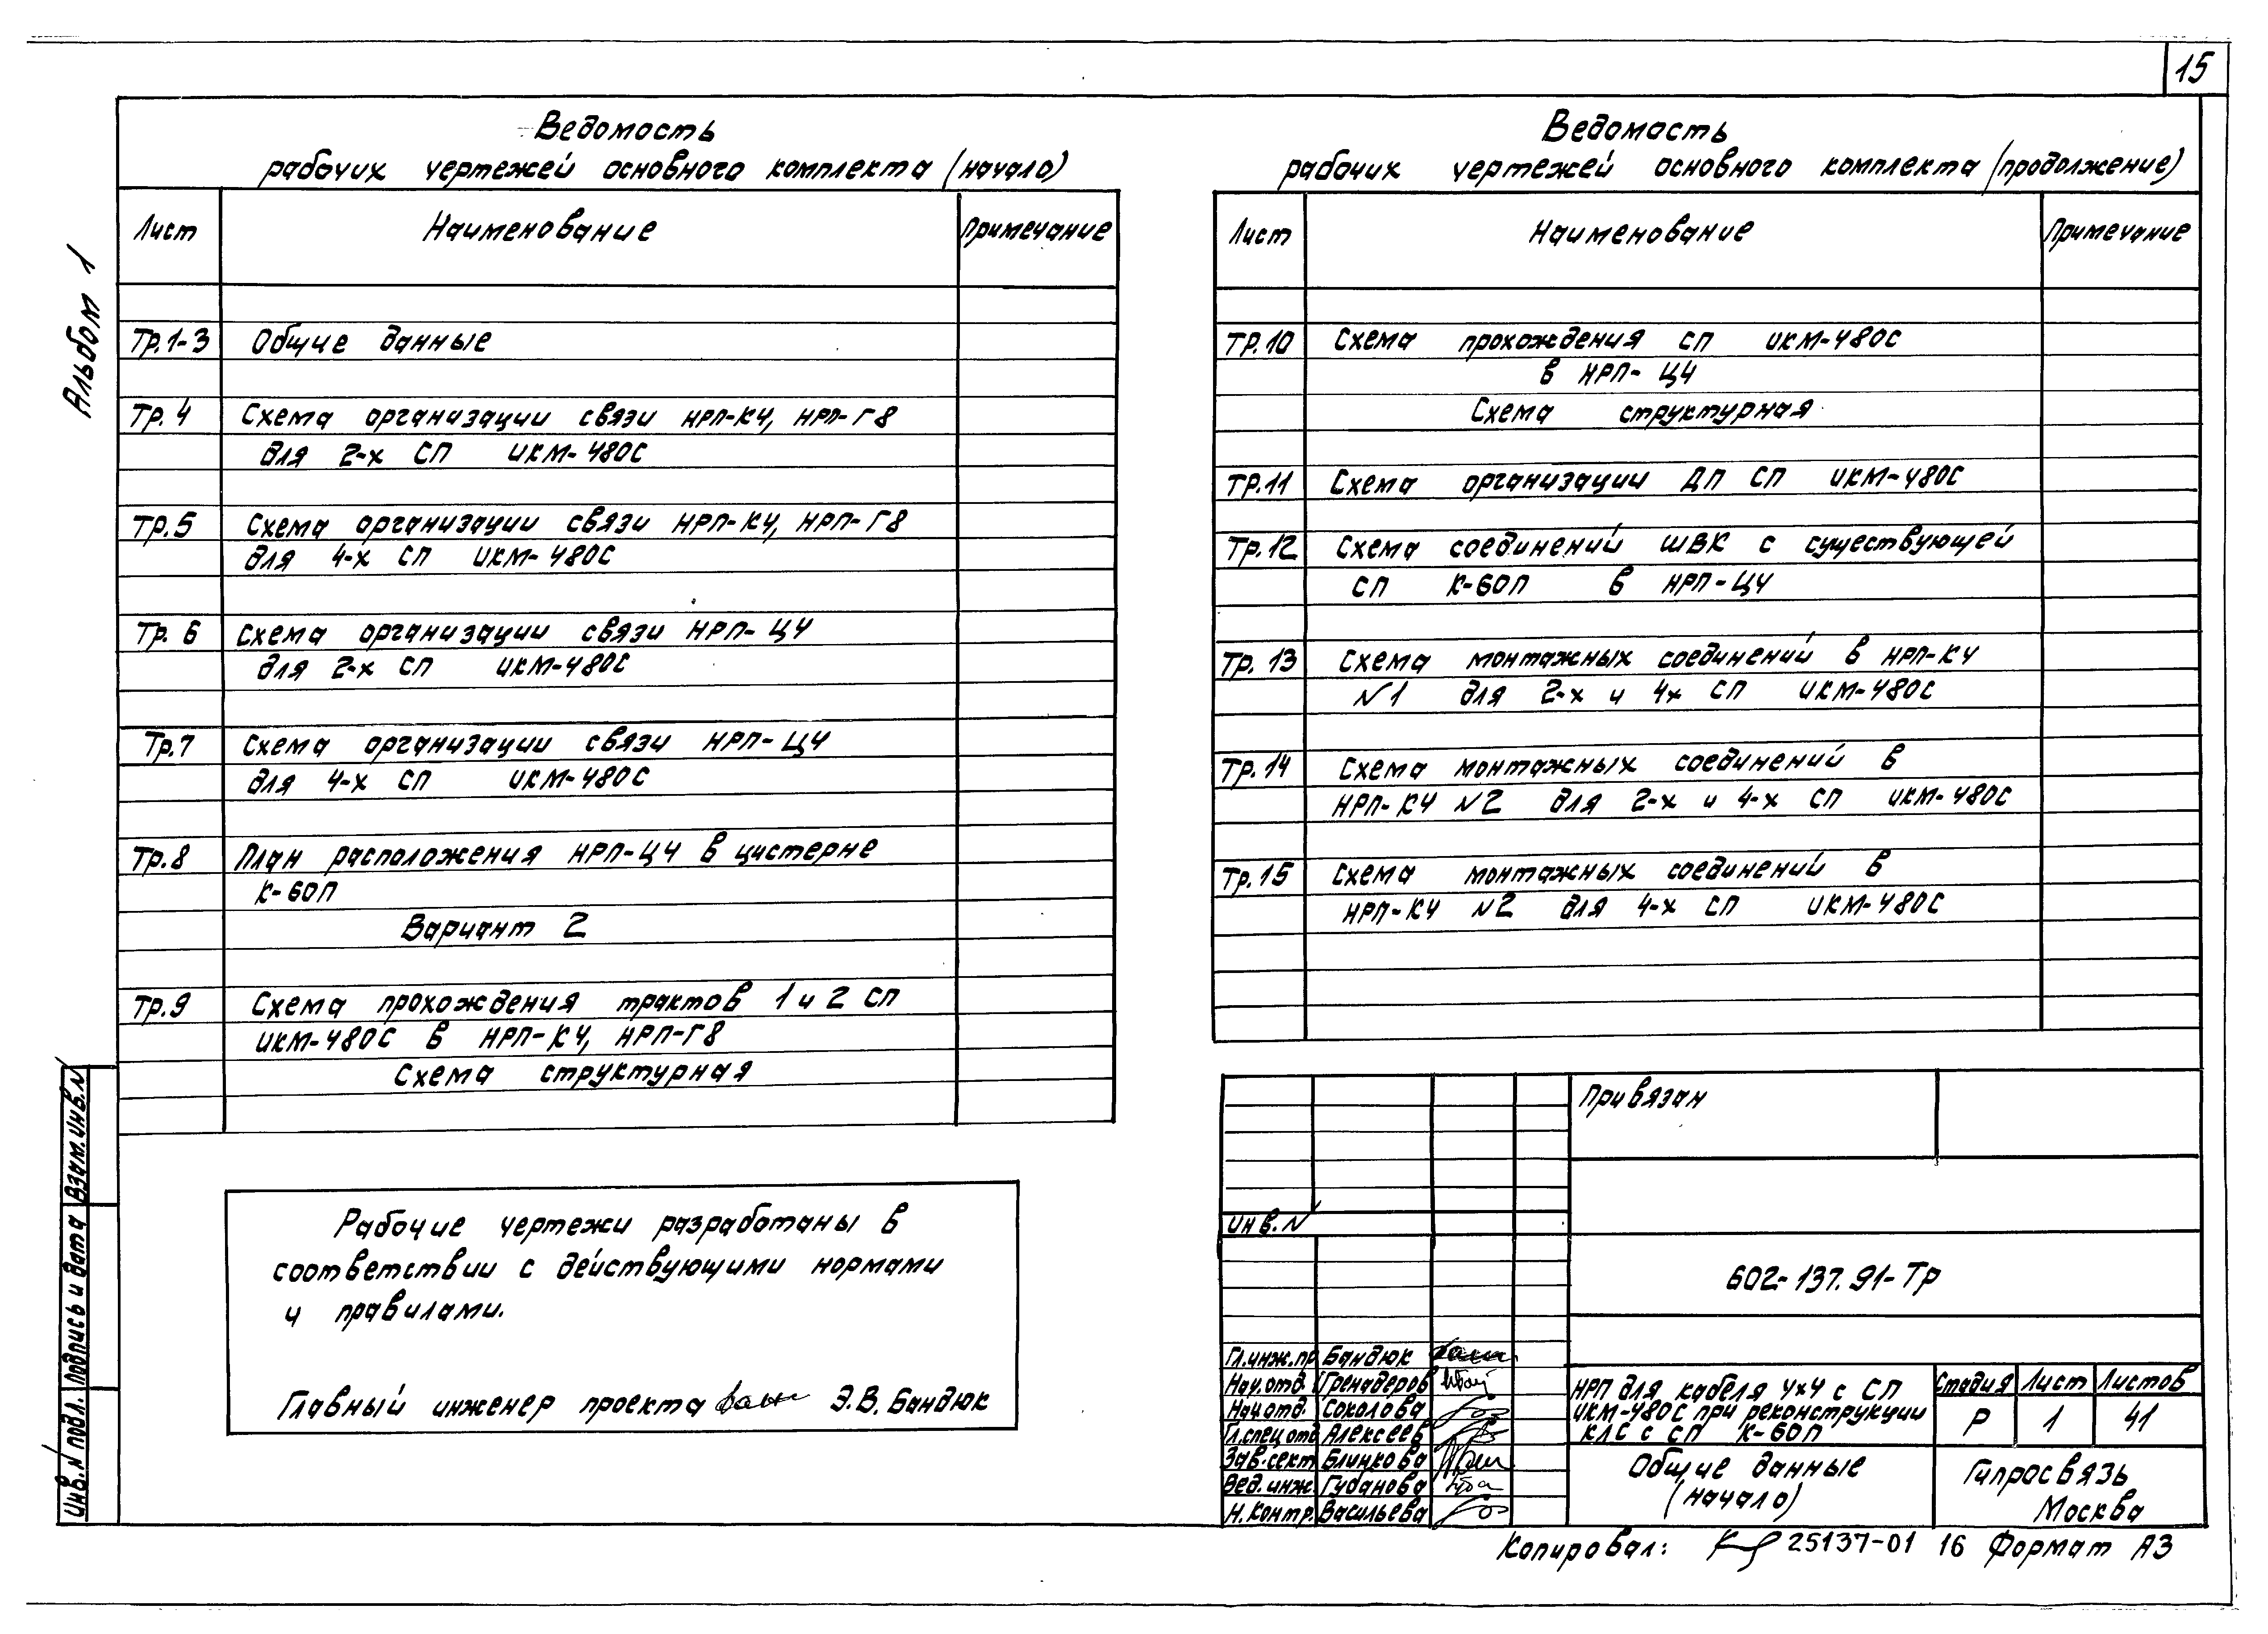 15
Альбом 1
Ведомость
рабочих чертежей основного комплекта (начало)
Лист Наименование Примечание
Тр.1-3 Общие данные
Тр. 4 Схема организации связи НРП-К4, НРП-Г8
для 2-х СП ИКМ-480С
Тр.5 Схема организации связи НРП-К4, НРП-Г8
для 4-х СП ИКМ-480С
Тр. 6 Схема организации связи НРП-Ц4
для 2-х СП ИКМ-480С
Тр.7 Схема организации связи НРП-Ц4
для 4-х СП ИКМ-480С
Тр.8 План расположения НРП-Ц4 в цистерне
К-60П
Вариант 2
Тр.9 Схема прохождения трактов 1 и 2 СП
ИКМ-480С в НРП-К4, НРП-Г8
Схема структурная
Ведомость
рабочих чертежей основного комплекта (продолжение)
Лист Наименование Примечание
Тр.10 Схема прохождения СП ИКМ-480С
в НРП-Ц4
Схема структурная
Тр.11 Схема организации ДП СП ИКМ-480С
Тр.12 Схема соединений ШВК с существующей
СП К-60П в НРП-Ц4
Тр. 13 Схема монтажных соединений в НРП-К4
N1 для 2-х и 4х СП ИКМ-480С
Тр.14 Схема монтажных соединений в
НРП-К4 N2 для 2-х и 4-х СП ИКМ-480С
Тр.15 Схема монтажных соединений в
НРП-К4 N2 для 4-х СП ИКМ-480С
Рабочие чертежи разработаны в
соответствии с действующими нормами
и правилами.
Главный инженер проекта Э.В. Бандюк
Взам.инв.N
Подпись и дата
Инв.N подл.
Привязан
Инв.N
602-137.91-Тр
Гл.инж.пр Бандюк
Нач.отд. Гренадеров
Нач.отд. Соколова
Гл.спец.отд Алексеев
Зав.сект Блинкова
Вед.инж. Губанова
Н.контр. Васильева
НРП для кабеля 4х4 с СП
ИКМ-480С при реконструкции
КЛС с СП К-60П
Стадия Лист Листов
Р 1 41
Общие данные
(начало)
Гипросвязь
Москва
Копировал: 25137-01 16 Формат А3